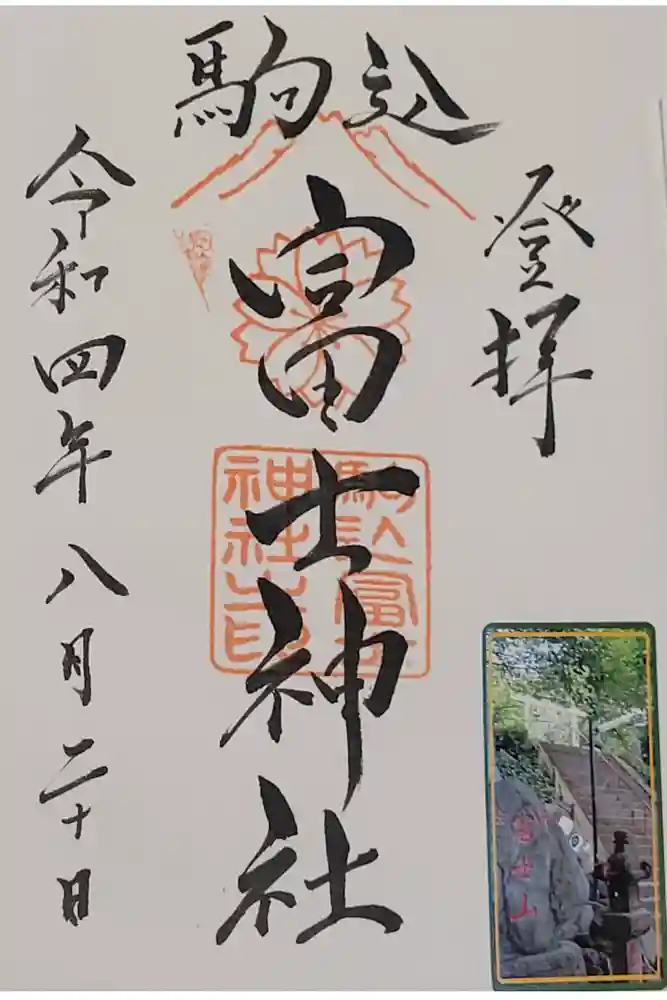 登拝
駒込
富士神社
駒込富士
神社之印
令和四年八月二十日
富士山